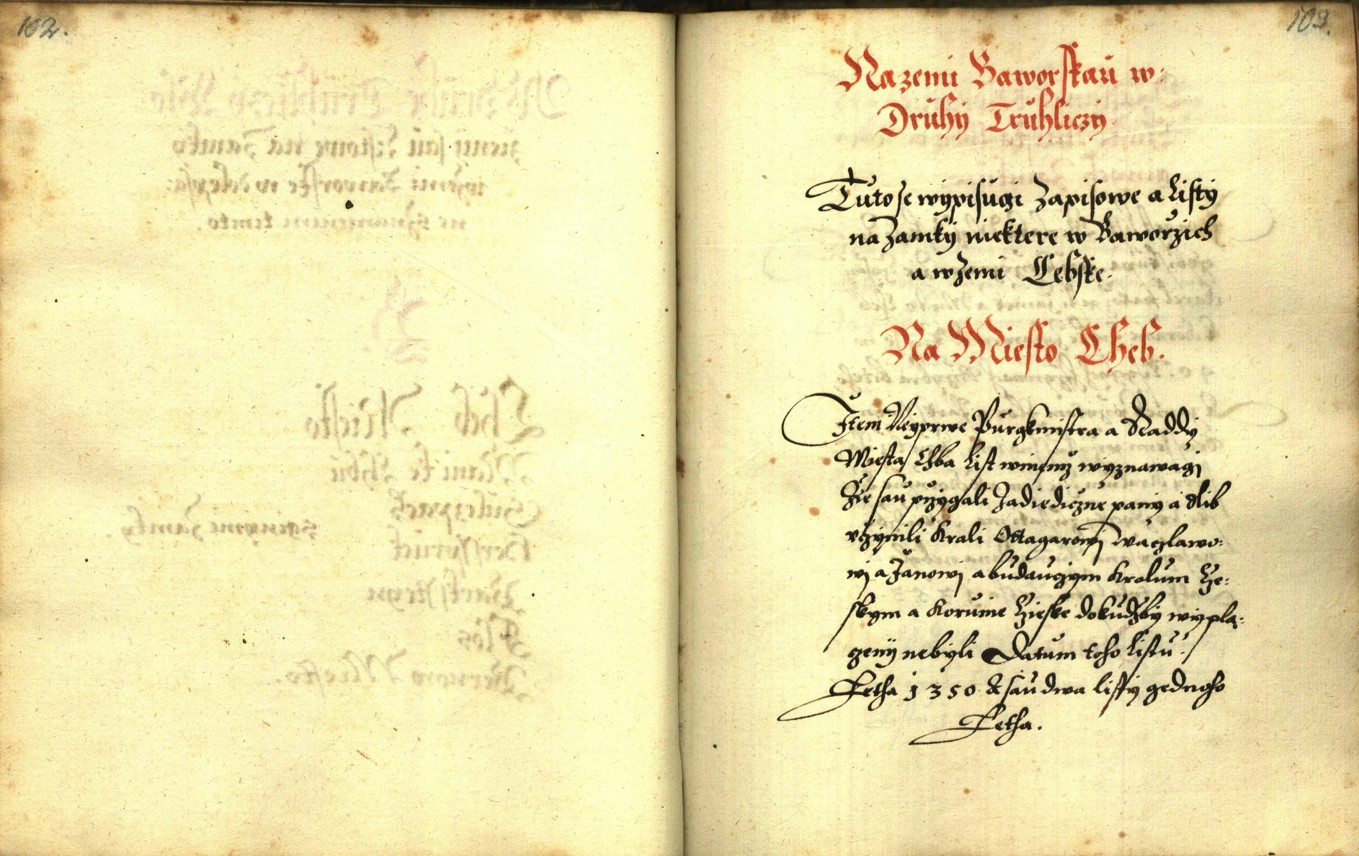 102.
103.
Na zemi Baworskau w:
Druhy Truhliczy
Tuto se wypisugi Zapisowe a Listy
na Zamky niektere w Baworzich
a w Zemi Chebske.
Na Miesto Cheb.
Item Neyprwe Purgkmistra a Raddy
Miesta Chba List w niemz wyznawagi
Zie sau przygali Za diediczne pany a slib
vczynili Krali Ottagarowj waczlawo:
wj a Janowj a budauczym Kroluom Cze:
skym a Korunie Czieske dokudzby wypla:
czeny nebyli Datum toho Listu
Letha 1350 A sau dwa listy gednoho
Letha.